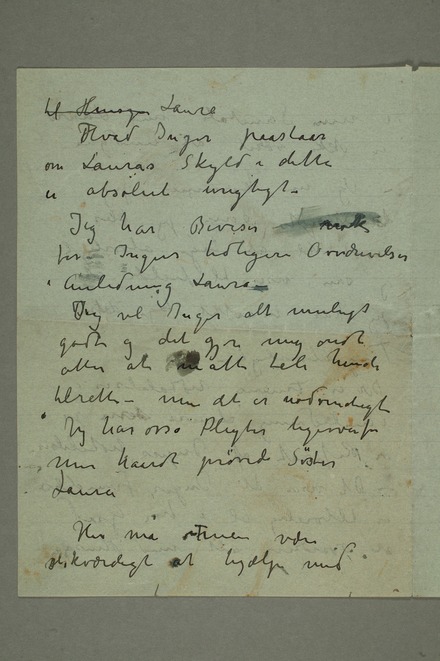 til Laura
Hvad Inger paastaar
om Lauras Skyld i dette
er absolut urigtigt –
Jeg har Beviser
for Ingers tidligere Overdrivelser
i Anledning Laura –
Jeg vil Inger alt muligt
godt og det gjør mig ondt
atter at måtte tale hende
tilrette – men det er nødvendigt
Jeg har også Pligter ligeoverfor
min haardt prøvede Søster
Laura
Her må være
elskværdigt at hjælpe med